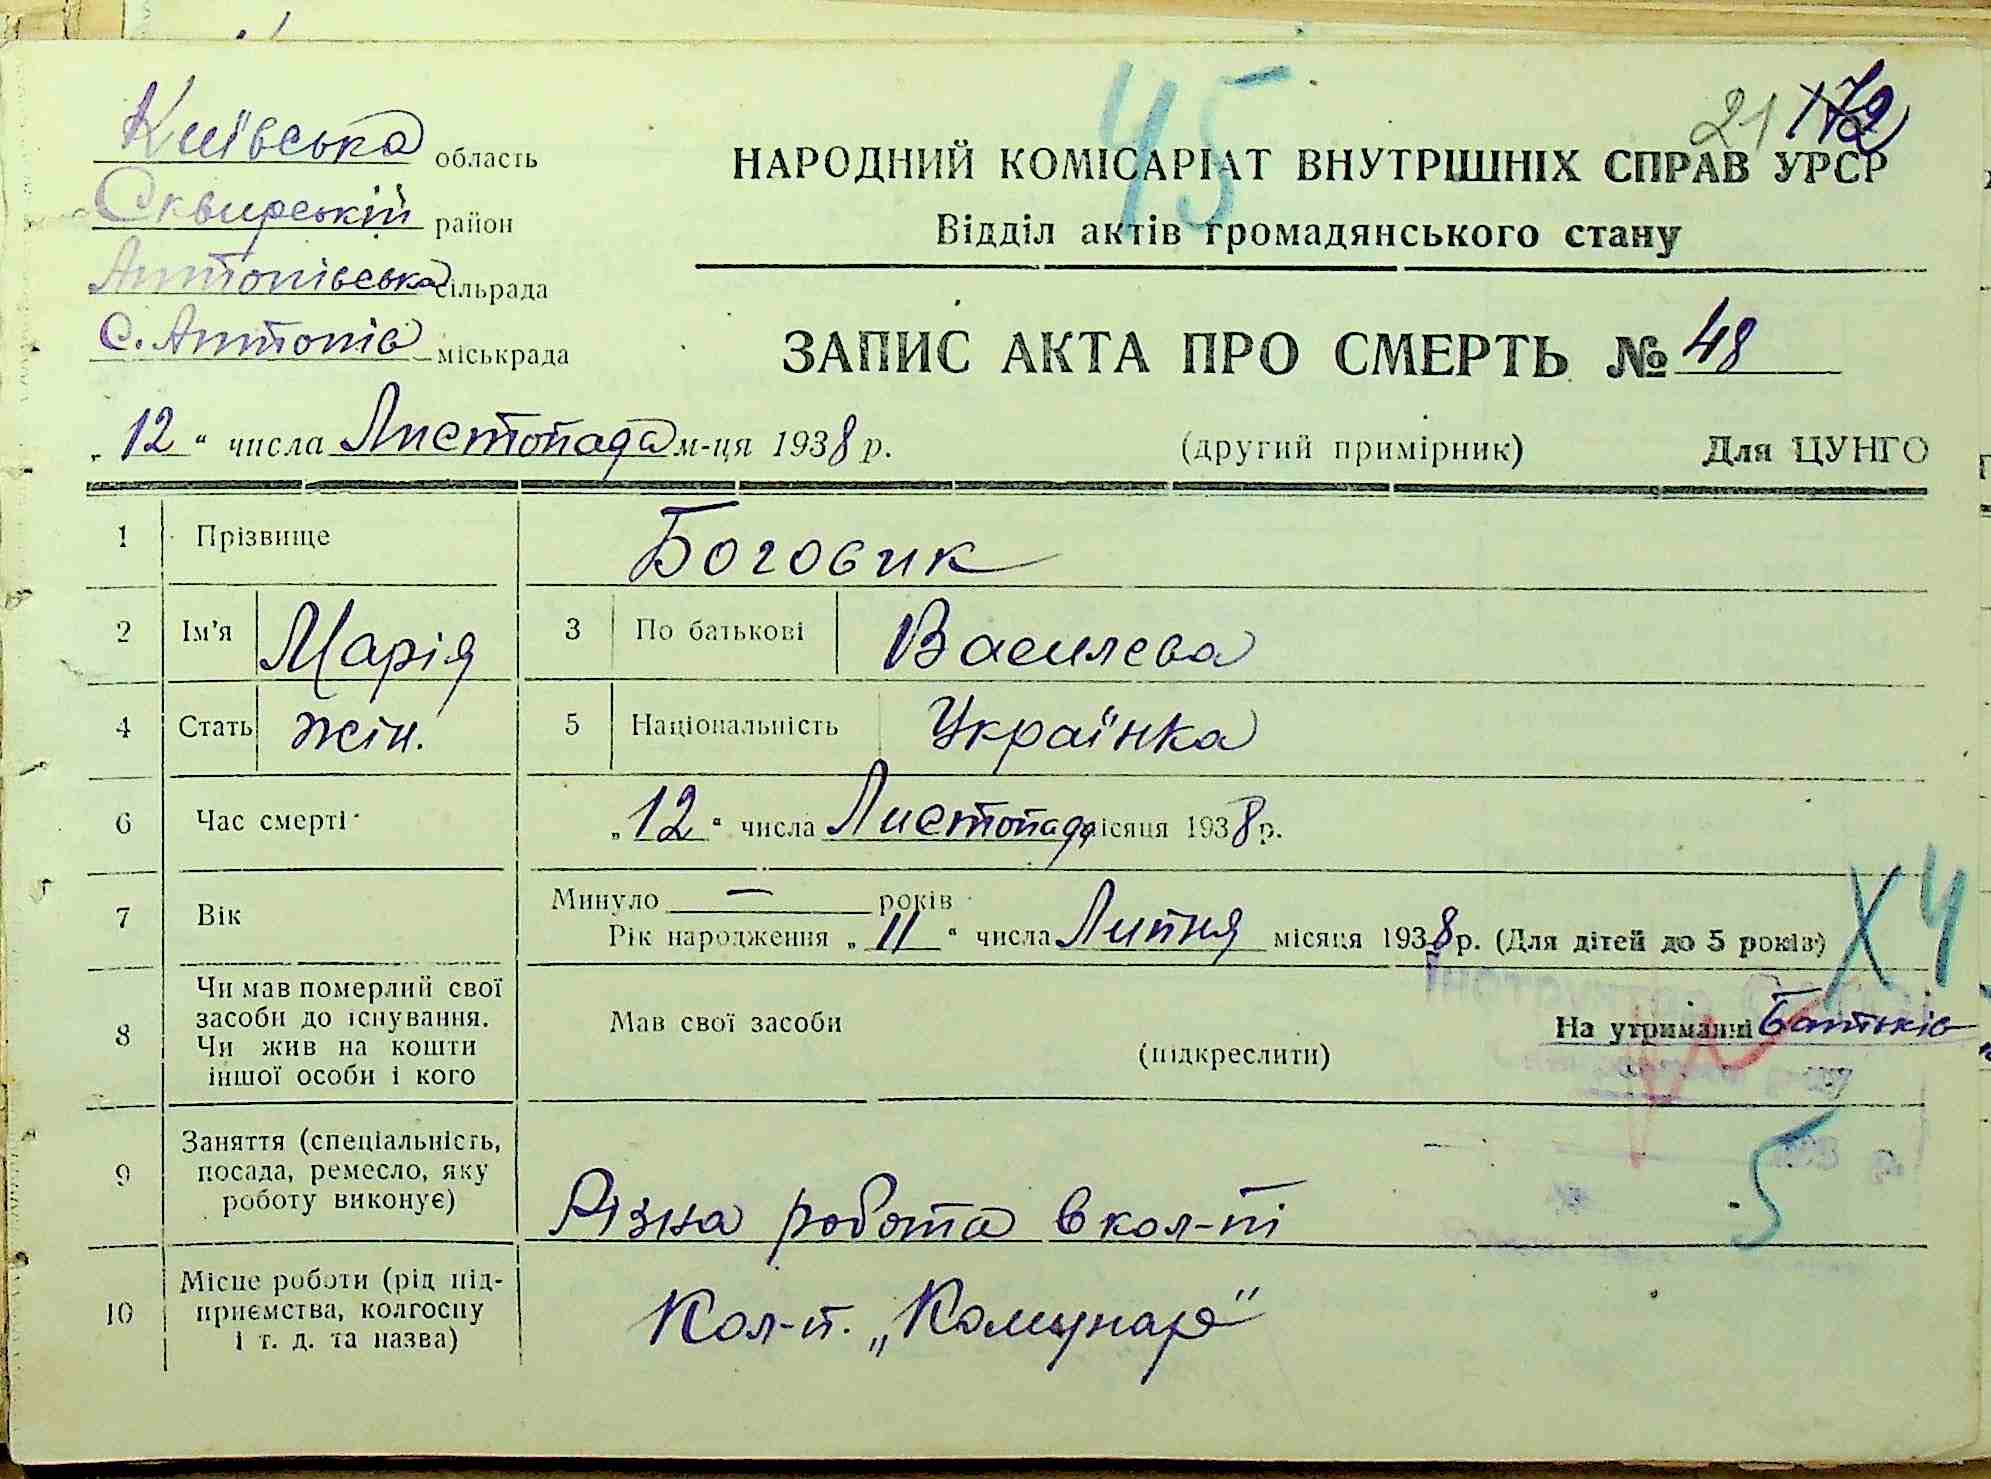 45
21 172
Київська область
Сквирській район
Антонівська сільрада
С. Антонів міськрада
НАРОДНИЙ КОМІСАРІАТ ВНУТРІШНІХ СПРАВ УРСР
Відділ актів громадянського стану
ЗАПИС АКТА ПРО СМЕРТЬ № 48
„12“ числа Листопада м-ця 1938 р. (другий примірник) Для ЦУНГО
1 Прізвище Боговик
2 Ім'я Марія 3 По батькові Василева
4 Стать жін. 5 Національність Українка
6 Час смерті „12“ числа Листопада місяця 1938 р.
7 Вік Минуло — років
Рік народження „11“ числа Липня місяця 1938 р. (Для дітей до 5 років)
Х4
8 Чи мав померлий свої
засоби до існування.
Чи жив на кошти
іншої особи і кого
Мав свої засоби (підкреслити) На утриманні Батьків
9 Заняття (спеціальність,
посада, ремесло, яку
роботу виконує)
Різна робота в кол-пі
5
10 Місце роботи (рід під-
приємства, колгоспу
і т. д. та назва)
Кол-п. „Комунар"